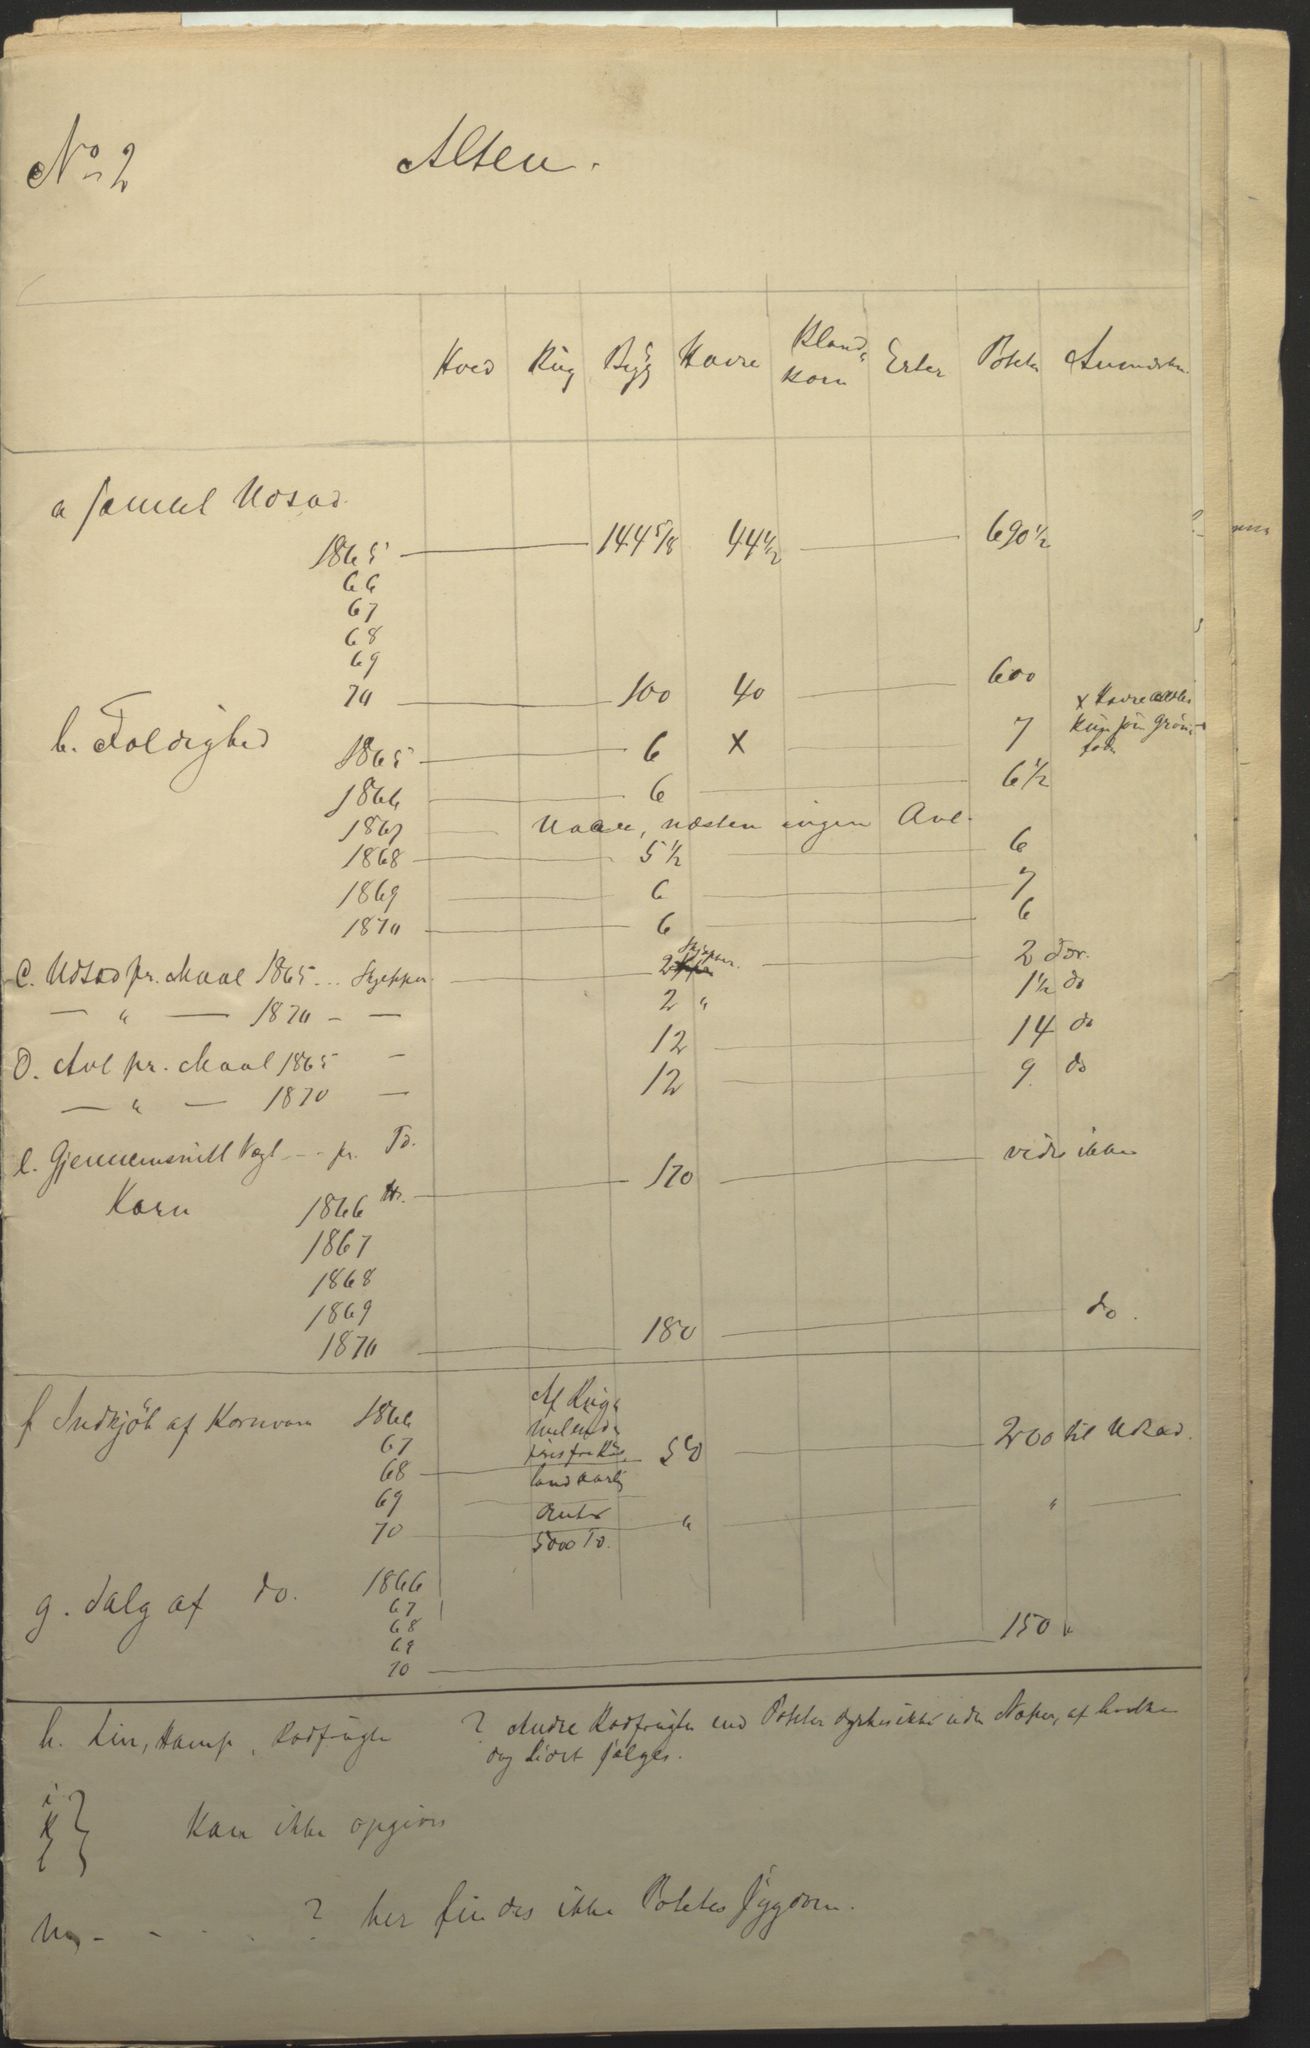 No 2 Alten.
Hved Rug Byg Havre Bland Korn Erter Poteter Anmerkn.
a samlet Udsæd
1865 144 5/8 44 1/2 690 1/2
66
67
68
69
70 100 40 600
x Havre
kun som Grøn-
foder
b. Foldighed
1865 6 x 7
1866 6 6 1/2
1867 Uaar, næsten ingen Avl.
1868 5 1/2 6
1869 6 7
1870 6 6
C. Udsæd pr. Maal 1865 ... Skjepper 2 Skjepper. 2 Tdr.
— " — 1870 - — 2 " 1 1/2 do
D. Avl pr. Maal 1865 — 12 14 do
— " — 1870 — 12 9. do
e. Gjennemsnitl Vægt - - - pr. Td.
Korn 1866 170 vides ikke
1867
1868
1869
1870 180 do.
f Indkjöb af Kornvarer 1866
67
68 50 200 til Udsæd.
69
70 " "
Af Rug
aarlig
5000 Td.
g. Salg af do. 1866
67
68
69
70 150 "
h. Lin, Hamp, Rodfrugter ? Andre Rodfrugter end Poteter dyrkes ikke uden Næper, af hvilke
dog Lidet sælges.
i
k
l Kan ikke opgives
m - - - - ? her findes ikke Potetes Sygdom.